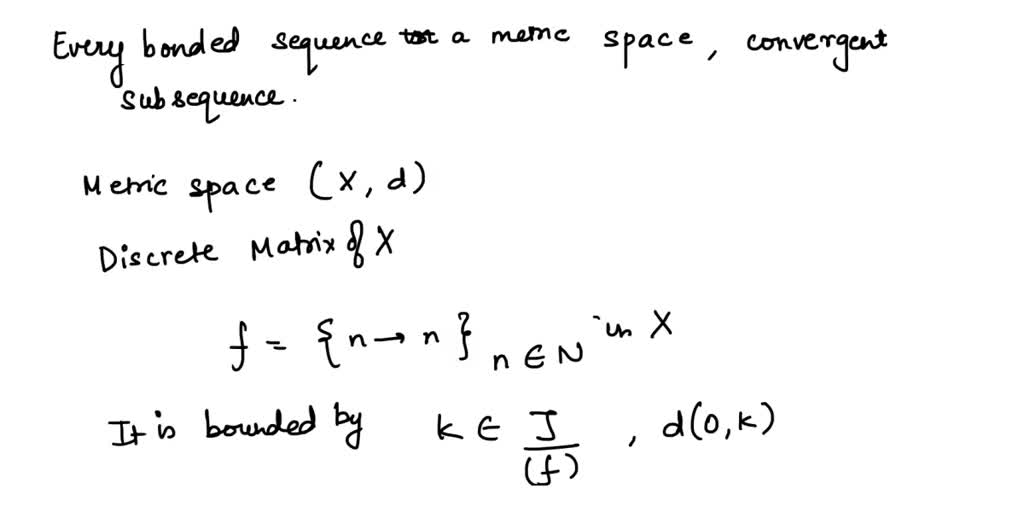 Every bonded sequence a metric space, convergent
subsequence.
Metric space (X, d)
Discrete Matrix of X
f = {n → n} n ∈ N in X
It is bounded by k ∈ I/(f) , d(0, k)